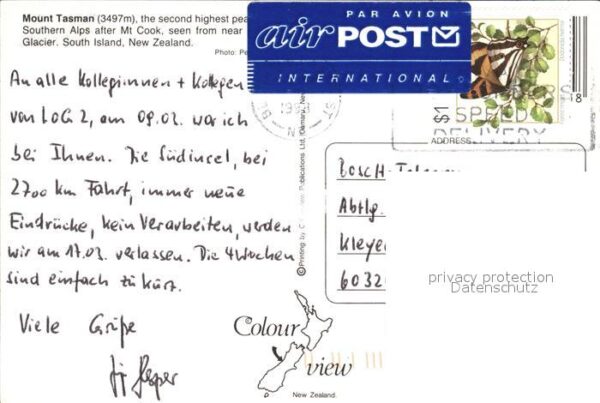 Mount Tasman (3497m), the second highest pea
Southern Alps after Mt Cook, seen from near
Glacier. South Island, New Zealand.
Photo: Pe
PAR AVION
air POST
INTERNATIONAL
$1
SPEED
DELIVERY
ADDRESS
8
An alle Kolleginnen + Kollegen
von LOG 2, am 09.02. war ich
bei Ihnen. Die Südinsel, bei
2700 km Fahrt, immer neue
Eindrücke, kein Verarbeiten, werden
wir am 17.02. verlassen. Die 4 Wochen
sind einfach zu kurz.
Viele Grüße
Publications Ltd, Oamaru, New
©Printing by
BOSCH-
Abtlg.
Kleyer
6032
privacy protection
Datenschutz
Colour
view
New Zealand.